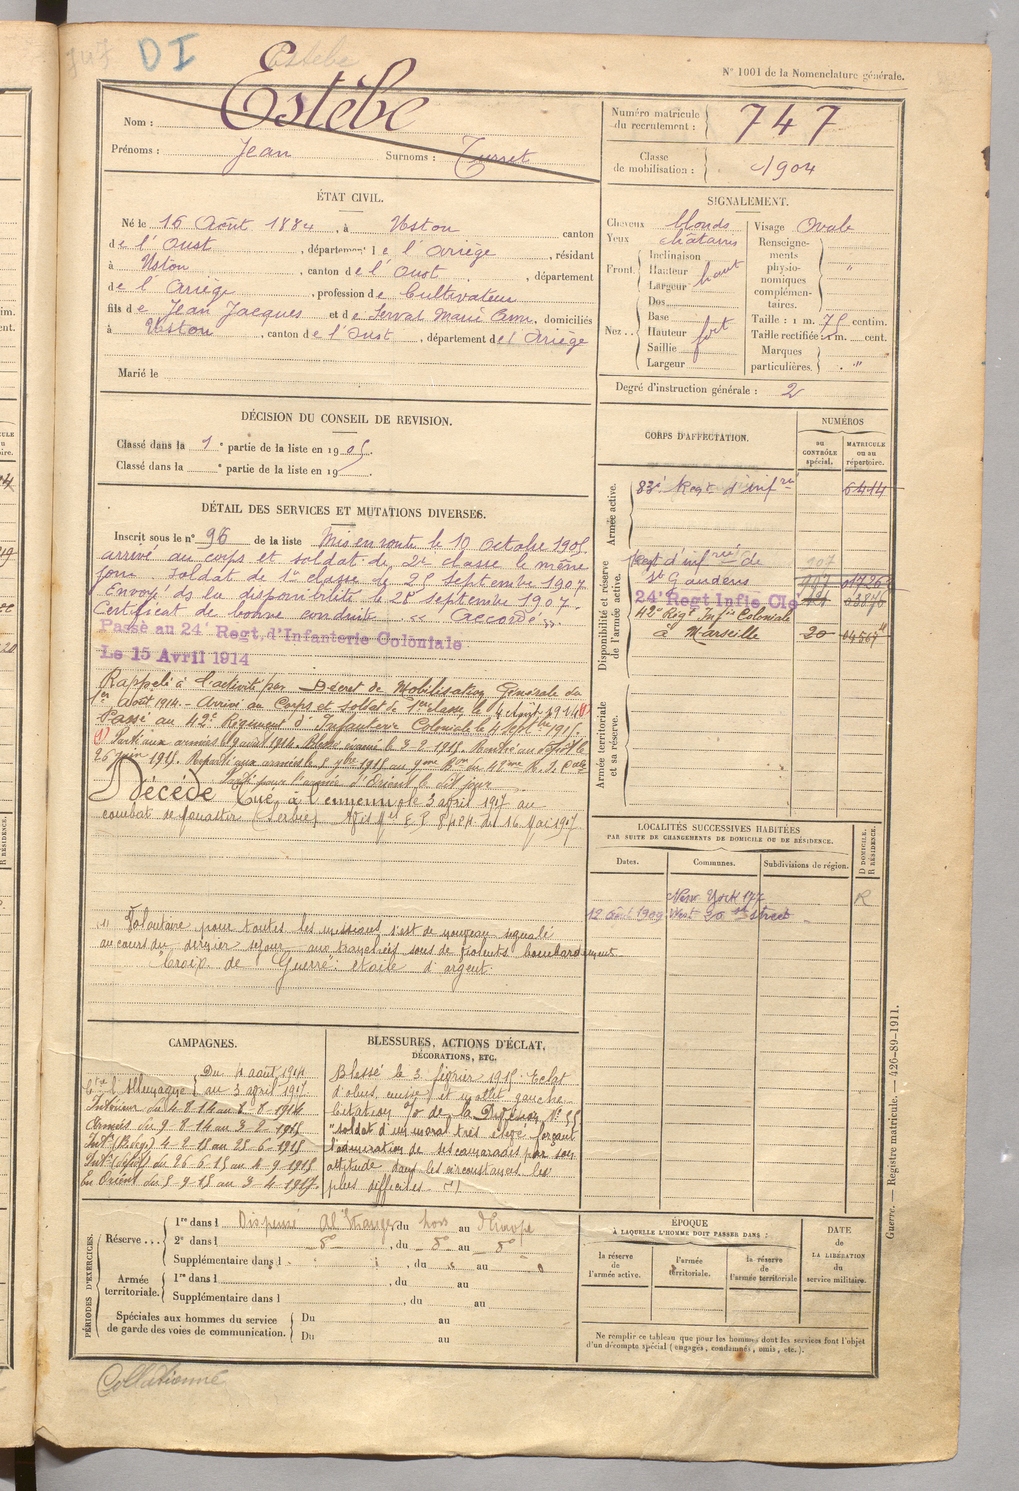 DI
Estèbe
N° 1001 de la Nomenclature générale.
Nom : Estèbe
Prénoms : Jean Surnoms : Turret
Numéro matricule du recrutement : 747
Classe de mobilisation : 1904
ÉTAT CIVIL.
Né le 16 Août 1884, à Uston canton
de l'Oust, département de l'Ariège, résidant
à Uston, canton de l'Oust, département
de l'Ariège, profession de Cultivateur
fils de Jean Jacques et de Servat Marie Anne, domiciliés
à Uston, canton de l'Oust, département de l'Ariège
Marié le
SIGNALEMENT.
Cheveux blonds
Yeux châtains
Front. Inclinaison
Hauteur haut
Largeur
Nez... Dos
Base
Hauteur fort
Saillie
Largeur
Visage Ovale
Renseignements physionomiques complémentaires. "
Taille : 1 m. 75 centim.
Taille rectifiée : 1 m. cent.
Marques particulières. "
Degré d'instruction générale : 2
DÉCISION DU CONSEIL DE REVISION.
Classé dans la 1e partie de la liste en 1905.
Classé dans la e partie de la liste en 19
CORPS D'AFFECTATION.
NUMÉROS
au CONTRÔLE spécial.
MATRICULE ou au répertoire.
Armée active.
83e Regt d'Infrie 6414
Disponibilité et réserve de l'armée active.
Regt d'infrie de 107
St Gaudens
24e Regt Infie Cle
42e Regt Infie Coloniale
à Marseille 20
Armée territoriale et sa réserve.
DÉTAIL DES SERVICES ET MUTATIONS DIVERSES.
Inscrit sous le n° 96 de la liste Mis en route le 10 octobre 1905.
arrivé au corps et soldat de 2e classe le même
jour. Soldat de 1re classe le 25 septembre 1907
Envoyé ds la disponibilité le 28 septembre 1907.
Certificat de bonne conduite "Accordé".
Passé au 24e Regt, d'Infanterie Coloniale
Le 15 Avril 1914
Rappelé à l'activité par Décret de Mobilisation Générale du
1er Août 1914 - Arrivé au Corps et Soldat de 1ere classe, le 4 Août 1914 (1)
Passé au 42e Régiment d'Infanterie Coloniale le 4 septbre 1915.
(1) Parti aux armées le 9 août 1914. Blessé évacué le 3-2-1915. Rentré au dépôt le
26 juin 1915. Reparti aux armées le 5 7bre 1915 au 9me Bon du 42me R. I. Cale
Parti pour l'armée d'Orient le dit jour
Décédé Tué à l'ennemi le 3 avril 1917 au
combat de Monastir (Serbie) Avis Mel E P 8424 du 16 Mai 1917
LOCALITÉS SUCCESSIVES HABITÉES
PAR SUITE DE CHANGEMENTS DE DOMICILE OU DE RÉSIDENCE.
Dates. Communes. Subdivisions de région. D DOMICILE. R RÉSIDENCE.
New York 177 R
12 Août 1909 West 20 th street
"Volontaire pour toutes les missions s'est de nouveau signalé
au cours du dernier séjour aux tranchées sous de violents bombardement
"Croix de Guerre" étoile d'argent.
CAMPAGNES.
Ctre l'Allemagne { Du 4 août 1914
au 3 avril 1917
Intérieur du 4-8-14 au 8-8-1914
Armées du 9-8-14 au 3-2-1915
Intr (Blessé) 4-2-15 au 25-6-1915
Intr (Dépôt) du 26-6-15 au 4-9-1915
En Orient du 5-9-15 au 3-4-1917.
BLESSURES, ACTIONS D'ÉCLAT,
DÉCORATIONS, ETC.
Blessé le 3 février 1915. Eclat
d'obus, cuisse et mollet gauche
Citation à l'O de la Division N° 55
"soldat d'un moral très élevé forçant
l'admiration de ses camarades par son
attitude dans les circonstances les
plus difficiles.
PÉRIODES D'EXERCICES.
Réserve... 1re dans l Dispensé à l'étranger du hors au d'Europe
2e dans l do, du do au do
Supplémentaire dans l , du au
Armée territoriale. 1re dans l , du au
Supplémentaire dans l , du au
Spéciales aux hommes du service de garde des voies de communication. Du au
Du au
ÉPOQUE
À LAQUELLE L'HOMME DOIT PASSER DANS :
la réserve de l'armée active.
l'armée territoriale.
la réserve de l'armée territoriale
DATE de LA LIBÉRATION du service militaire.
Ne remplir ce tableau que pour les hommes dont les services font l'objet
d'un décompte spécial (engagés, condamnés, omis, etc.).
Guerre. — Registre matricule. — 426-89-1911.
Collationné